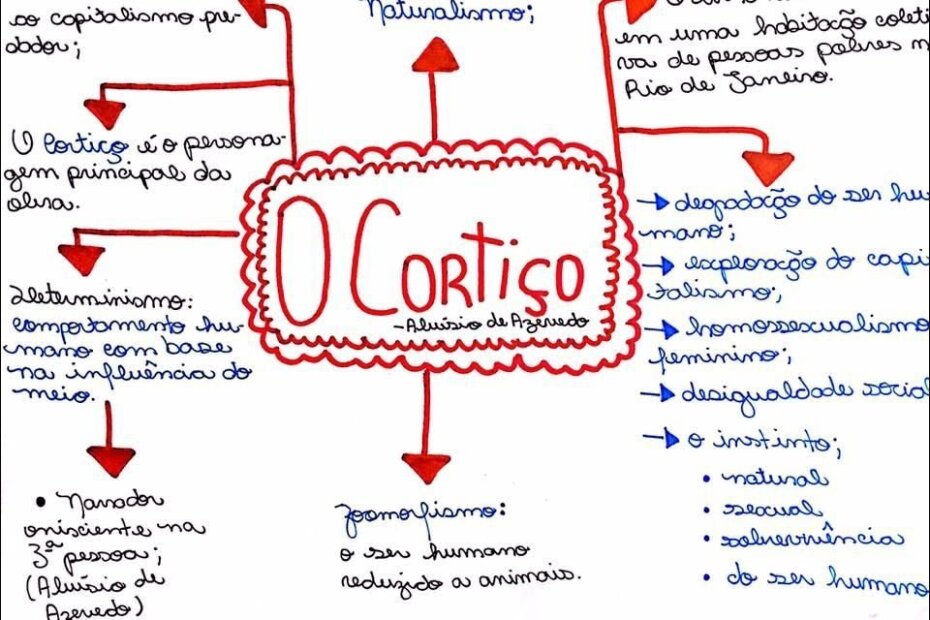 ao capitalismo pre-
dador;
O Cortiço é o persona-
gem principal da
obra.
Determinismo:
comportamento hu-
mano com base
na influência do
meio.
• Narrador
onisciente na
3ª pessoa;
(Aluísio de
Azevedo)
Naturalismo;
O CORTIÇO
-Aluísio de Azevedo
Zoomorfismo:
o ser humano
reduzido a animais.
em uma habitação coleti
va de pessoas pobres n
Rio de Janeiro.
→ degradação do ser hu
mano;
→ exploração do capi
talismo;
→ homossexualismo
feminino;
→ desigualdade social
→ o instinto;
• natural
• sexual
• sobrevivência
• do ser humano